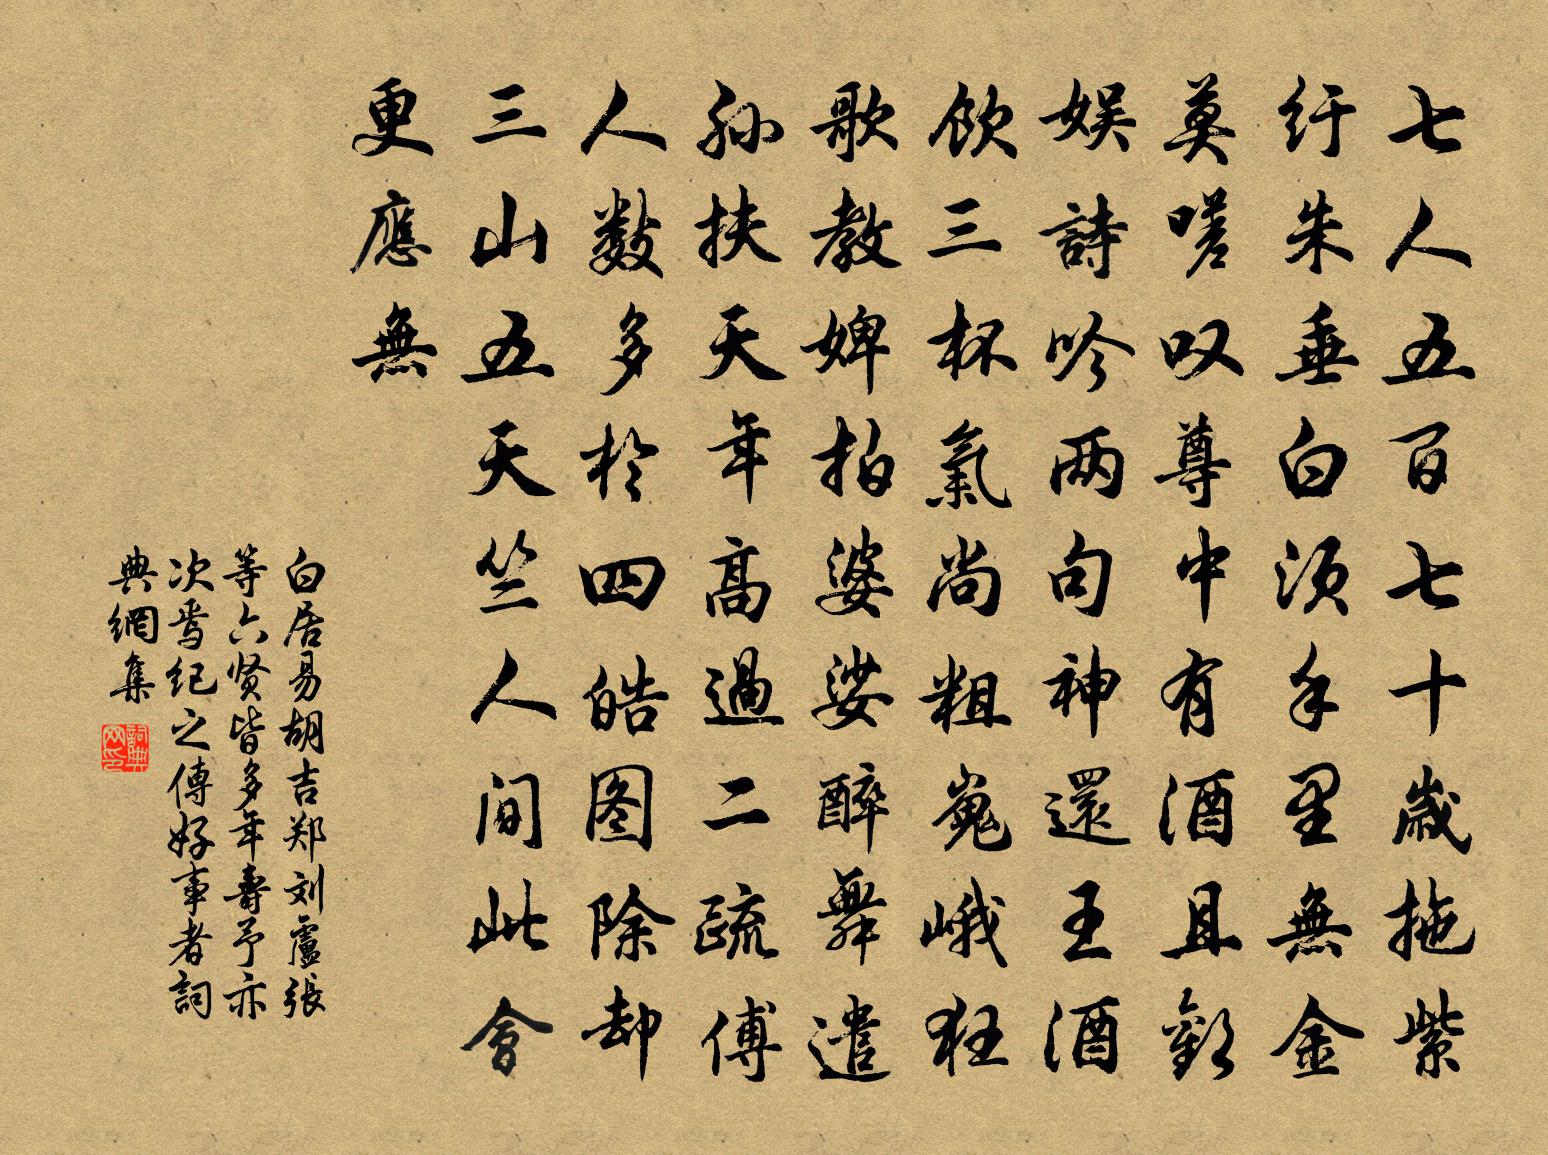 七人五百七十歲拖紫
紆朱垂白須手里無金
莫嗟叹尊中有酒且歡
娱詩吟两句神還王酒
飲三杯氣尚粗嵬峨狂
歌教婢拍婆娑醉舞遣
孫扶天年高過二疏傅
人數多於四皓图除却
三山五天竺人間此會
更應無
白居易胡吉郑刘盧張
等六贤皆多年壽予亦
次焉紀之傳好事者詞
典網集
詞典网印